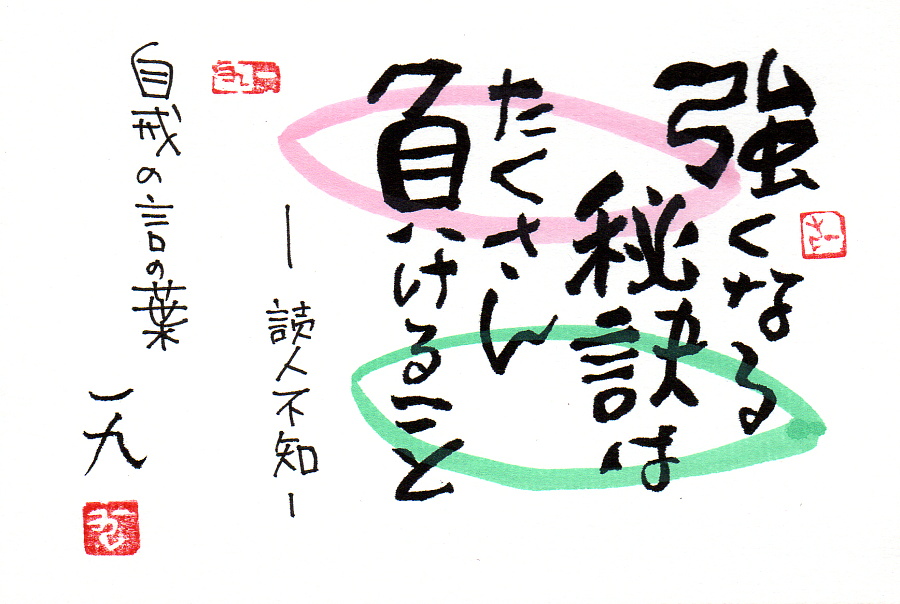 強くなる
秘訣は
たくさん
負けること
— 読人不知 —
自戒の言の葉
一九